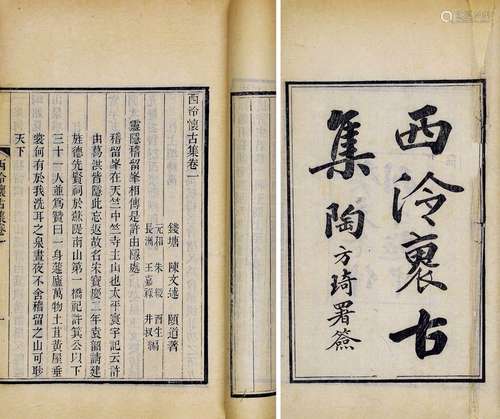 西泠褱古
集陶方琦署簽
西泠懷古集卷一
錢塘 陳文述 頤道著
元和 朱綬 酉生
長洲 王嘉祿 井叔 編
靈隱稽留峯相傳是許由隱處
稽留峯在天竺中竺寺主山也太平寰宇記云許
由葛洪皆隱此忘返故名宋寶慶二年袁韶請建
旌德先賢祠於蘇隄南山第一橋祀許箕公以下
三十一人並爲贊曰一身蘧廬萬物土苴黃屋垂
裳何有於我洗耳之泉晝夜不舍稽留之山可眇
天下
西泠懷古集卷一